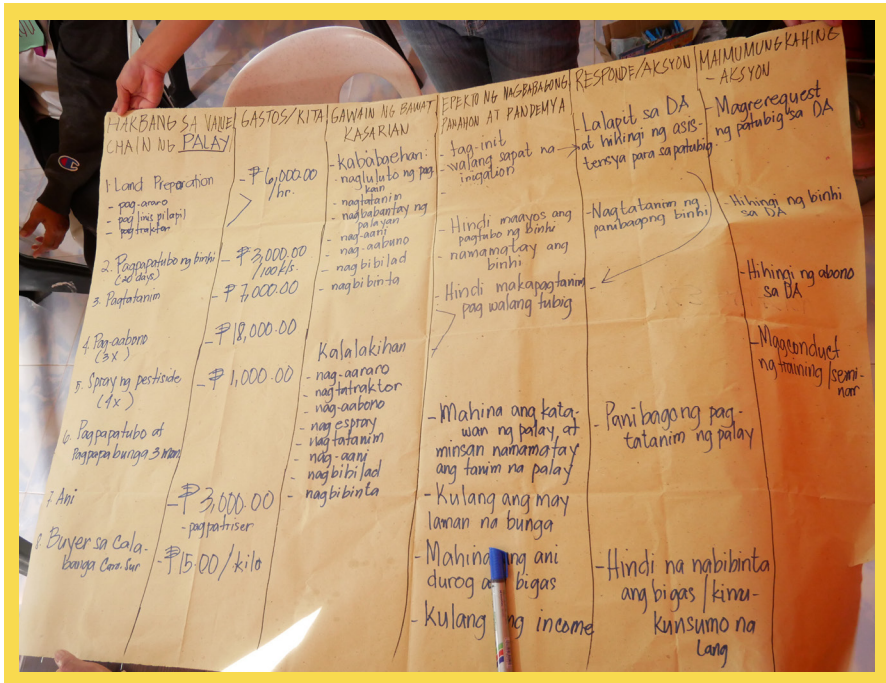 HAKBANG SA VALUE
CHAIN NG PALAY
1. Land Preparation
- pag-araro
- pag linis pilapil
- pagtraktor
2. Pagpapatubo ng binhi
(20 days)
3. Pagtatanim
4. Pag-aabono
(3x)
5. Spray ng pestiside
(4x)
6. Pagpapatubo at
Pagpapabunga 3 mon.
7. Ani
8. Buyer sa Cala-
banga Cam. Sur
GASTOS/KITA
- ₱6,000.00
/hr.
- ₱3,000.00
/100 kls.
- ₱7,000.00
- ₱18,000.00
- ₱1,000.00
- ₱3,000.00
- pagpatriser
- ₱15.00/kilo
GAWAIN NG BAWAT
KASARIAN
- kababaehan:
- nagluluto ng pag
kain
- nagtatanim
- nagbabantay ng
palayan
- nag-aani
- nag-aabuno
- nagbibilad
- nagbibinta
Kalalakihan
- nag-aararo
- nagtatraktor
- nag-aabono
- nag espray
- nagtatanim
- nag-aani
- nagbibilad
- nagbibinta
EPEKTO NG NAGBABAGONG
PANAHON AT PANDEMYA
- tag-init
- walang sapat na
inigation
- Hindi maayos ang
pagtubo ng binhi
- namamatay ang
binhi
- Hindi makapagtanim
pag walang tubig
- Mahina ang kata-
wan ng palay at
minsan namamatay
ang tanim na palay
- Kulang ang may
laman na bunga
- Mahina ang ani
durog a bigas
- Kulang ng income
RESPONDE/AKSYON
- Lalapit sa DA
at hihingi ng asis-
tensya para sa patubig
- Nagtatanim ng
panibagong binhi
- Panibagong pag-
tatanim ng palay
- Hindi na nabibinta
ang bigas / kinu-
kunsumo na
lang
MAIMUMUNGKAHING
- AKSYON
- Magrerequest
ng patubig sa DA
- Hihingi ng binhi
sa DA
- Hihingi ng abono
sa DA
- Magconduct
ng training/semi-
nar